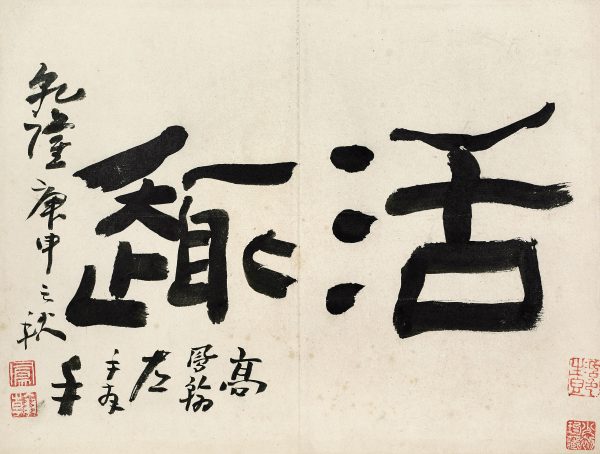 活趣
乾隆庚申之秋
高鳳翰左手